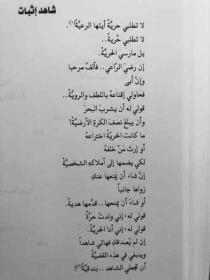 شاهد إثبات
لا تطلبي حريّةً أيتها الرعيّةْ
لا تطلبي حُريةً..
بل مارسي الحريّةْ.
إن رَضيَ الراعي.. فألفُ مرحبا
وإن أبى
فحاولي إقناعه باللطف والرويّةْ..
قولي له أن يشربَ البحرَ
وأن يبلعَ نصفَ الكرةِ الأرضيّةْ!
ما كانت الحريّةُ اختراعهُ
أو إرثَ مَنْ خلّفهُ
لكي يضمها إلى أملاكهِ الشخصيّةْ
إن شاءَ أن يمنعها عنكِ
زواها جانباً
أو شاءَ أن يمنحها.. قدّمها هديةْ.
قولي لهُ: إني ولدتُ حرّةً
قولي لهُ: إني أنا الحريّةْ.
إن لم يُصدقكِ فهاتي شاهداً
وينبغي في هذه القضيّةْ
أن تجعلي الشاهدَ.. بندقيّةْ!